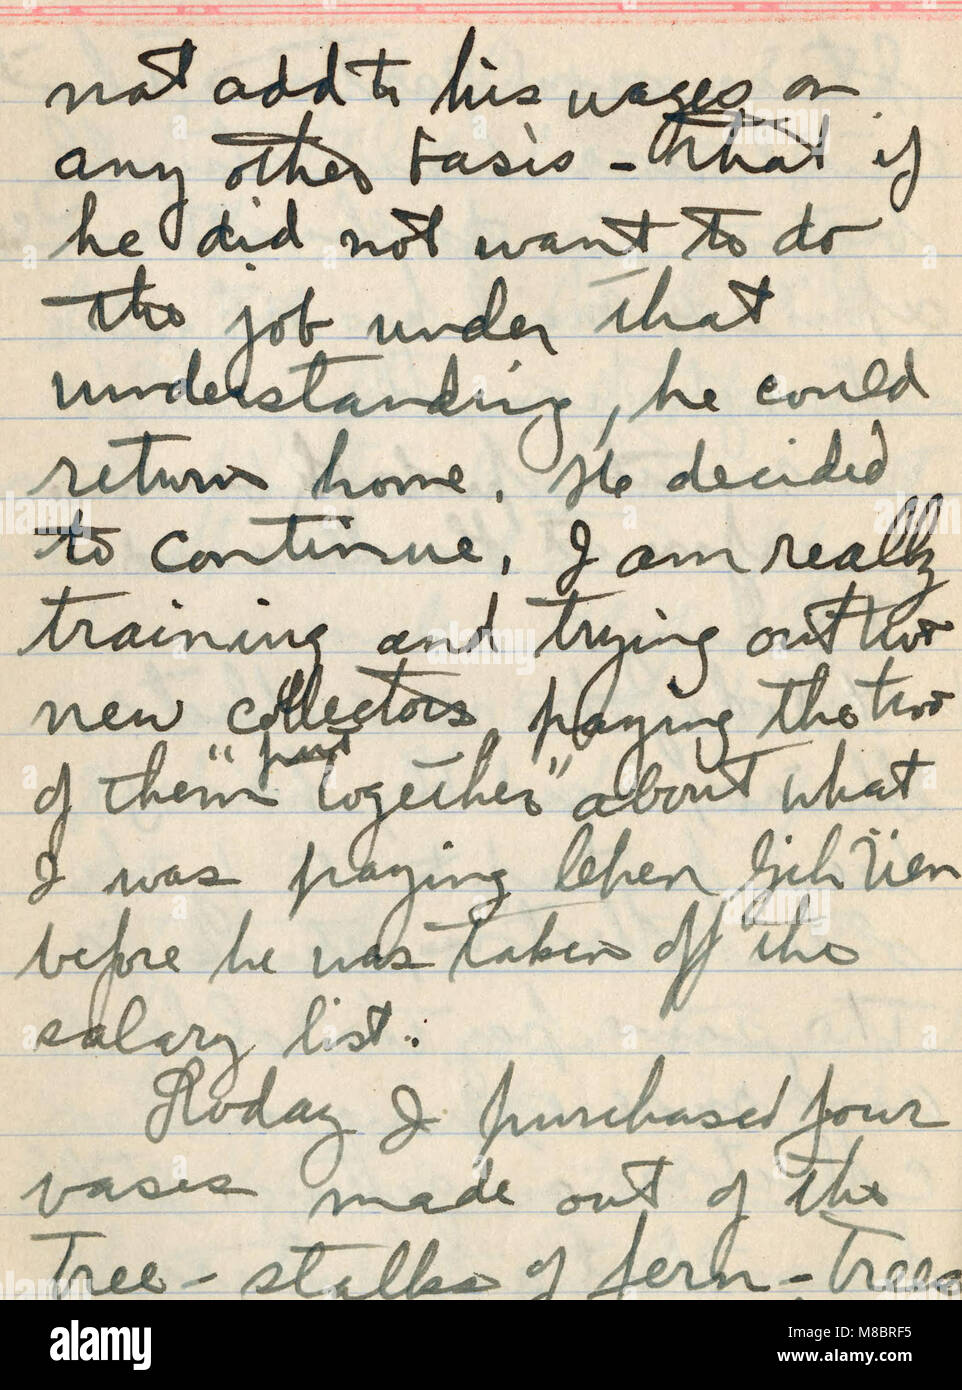 not add to his wages on
any other basis - that if
he did not want to do
the job under that
understanding, he could
return home. He decided
to continue. I am really
training and trying out two
new collectors, paying the two
of them "put together" about what
I was paying before he was taken off the
salary list.
Today I purchased four
vases made out of the
tree-stalks of fern-trees
alamy
Image ID: M8BRF5
www.alamy.com